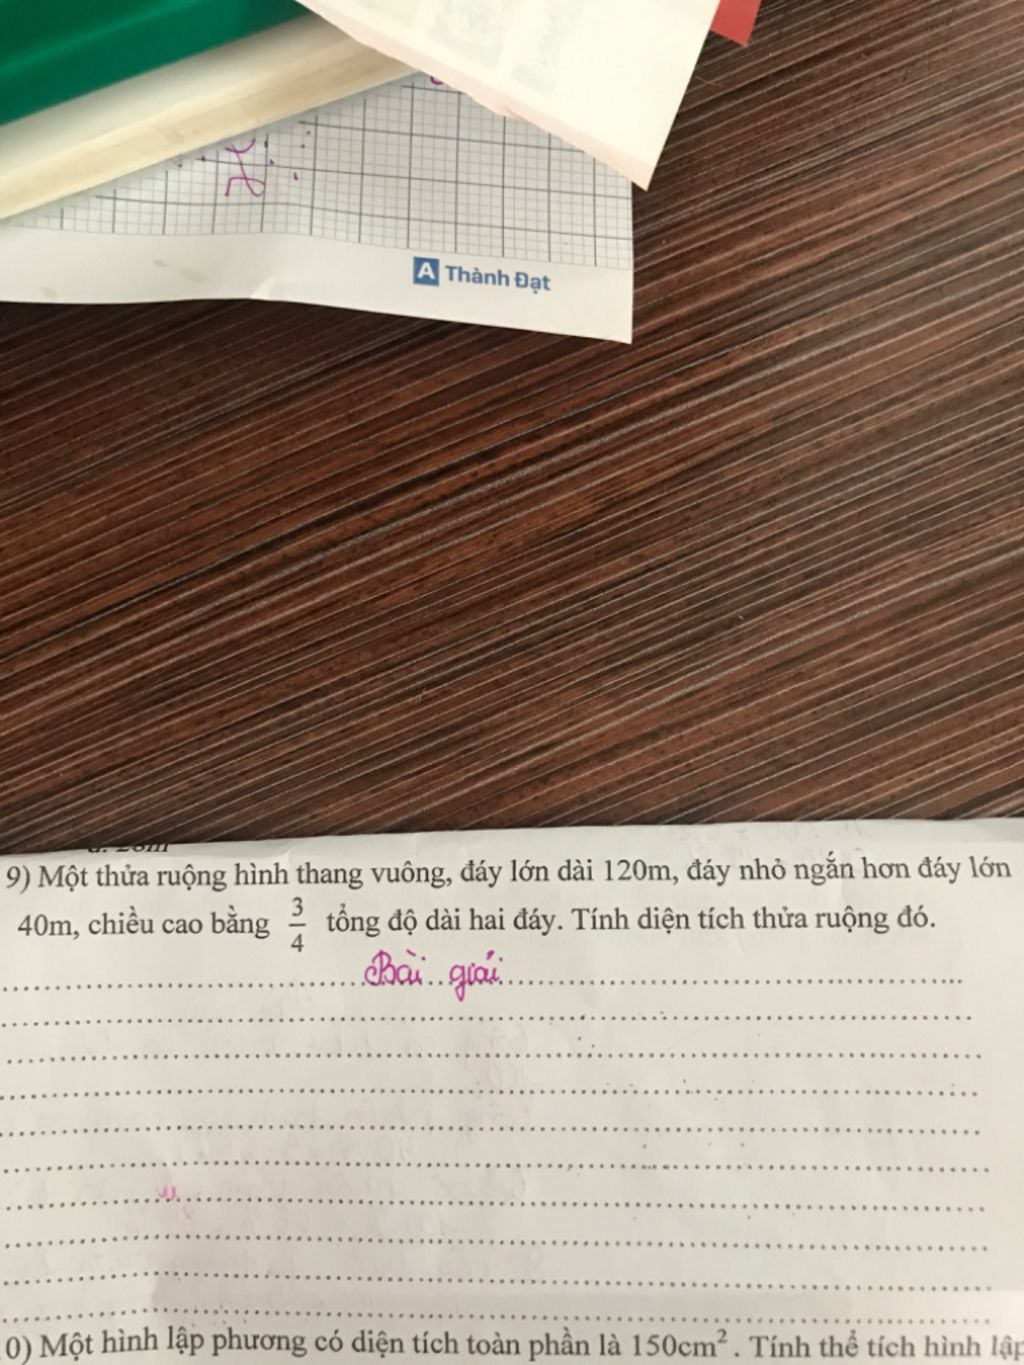 A Thành Đạt
9) Một thửa ruộng hình thang vuông, đáy lớn dài 120m, đáy nhỏ ngắn hơn đáy lớn
40m, chiều cao bằng 3/4 tổng độ dài hai đáy. Tính diện tích thửa ruộng đó.
Bài giải
0) Một hình lập phương có diện tích toàn phần là 150cm². Tính thể tích hình lập